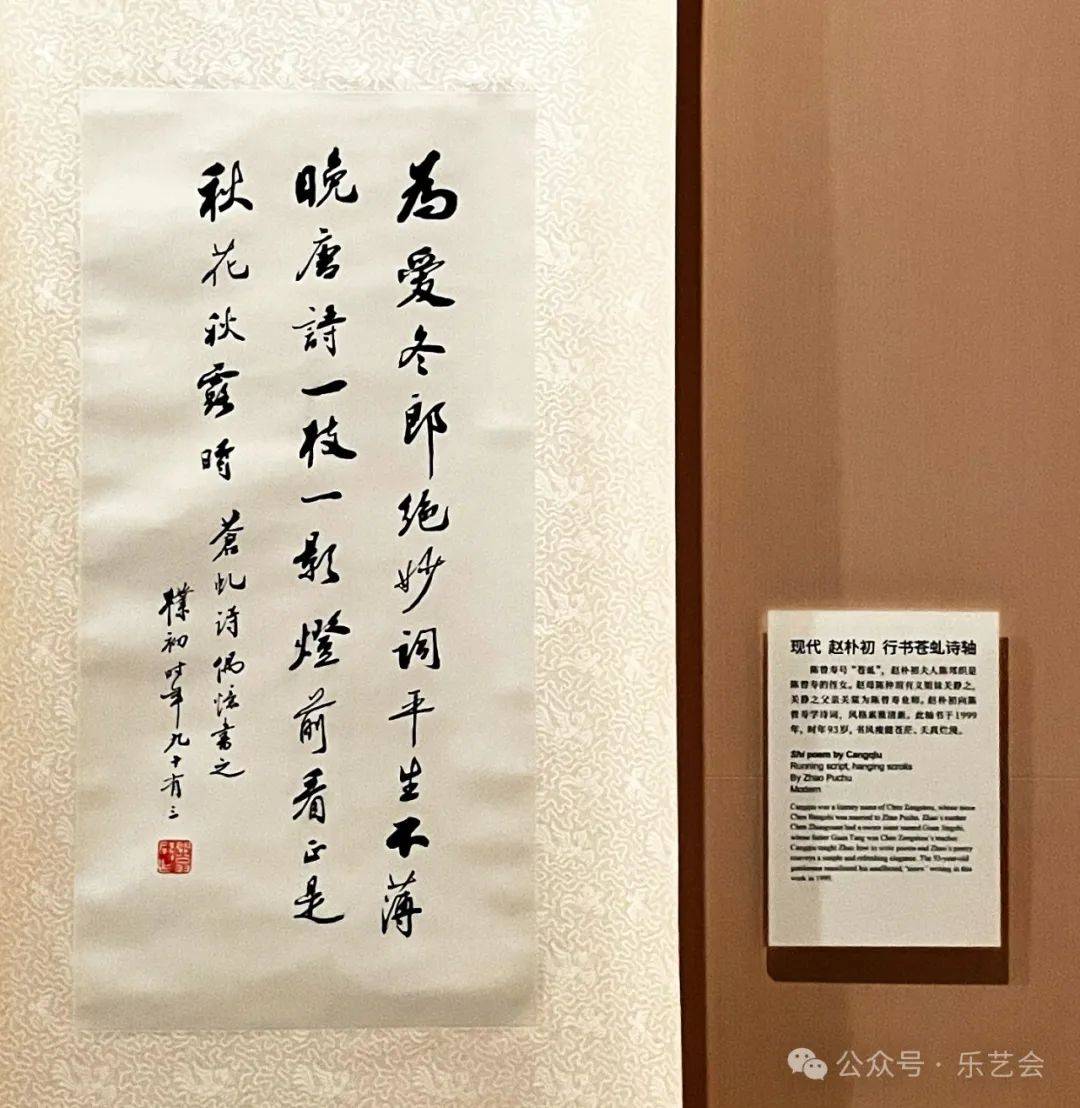 為愛冬郎絶妙词平生不薄
晚唐詩一枝一影燈前看正是
秋花秋露時 蒼虬诗偶憶書之
樸初时年九十有三
现代 赵朴初 行书苍虬诗轴
陈曾寿号“苍虬”，赵朴初夫人陈邦织是
陈曾寿的侄女。赵母陈仲瑄有义姐妹关静之，
关静之父亲关棠为陈曾寿业师。赵朴初向陈
曾寿学诗词，风格素雅清新。此轴书于1999
年，时年93岁，书风瘦健苍茫、天真烂漫。
Shi poem by Cangqiu
Running script, hanging scrolls
By Zhao Puchu
Modern
Cangqiu was a literary name of Chen Zengshou, whose niece
Chen Bangzhi was married to Zhao Puchu. Zhao's mother
Chen Zhongxuan had a sworn sister named Guan Jingzhi,
whose father Guan Tang was Chen Zengshou's teacher.
Cangqiu taught Zhao how to write poems and Zhao's poetry
conveys a simple and refreshing elegance. The 93-year-old
work in 1999.
公众号·乐艺会